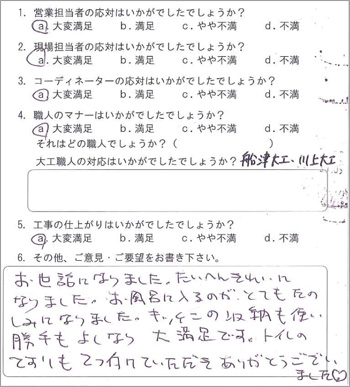 1. 営業担当者の応対はいかがでしたでしょうか？
a. 大変満足 b. 満足 c. やや不満 d. 不満
2. 現場担当者の応対はいかがでしたでしょうか？
a. 大変満足 b. 満足 c. やや不満 d. 不満
3. コーディネーターの応対はいかがでしたでしょうか？
a. 大変満足 b. 満足 c. やや不満 d. 不満
4. 職人のマナーはいかがでしたでしょうか？
a. 大変満足 b. 満足 c. やや不満 d. 不満
それはどの職人でしょうか？（ ）
大工職人の対応はいかがでしたでしょうか？ 船津大工・川上大工
5. 工事の仕上がりはいかがでしたでしょうか？
a. 大変満足 b. 満足 c. やや不満 d. 不満
6. その他、ご意見・ご要望をお書き下さい。
お世話になりました。たいへんきれいに
なりました。お風呂に入るのが、とてもたの
しみになりました。キッチンの収納も使い
勝手もよしなら 大満足です。トイレの
てすりも 2つ付けていただき ありがとうござい
ました♡